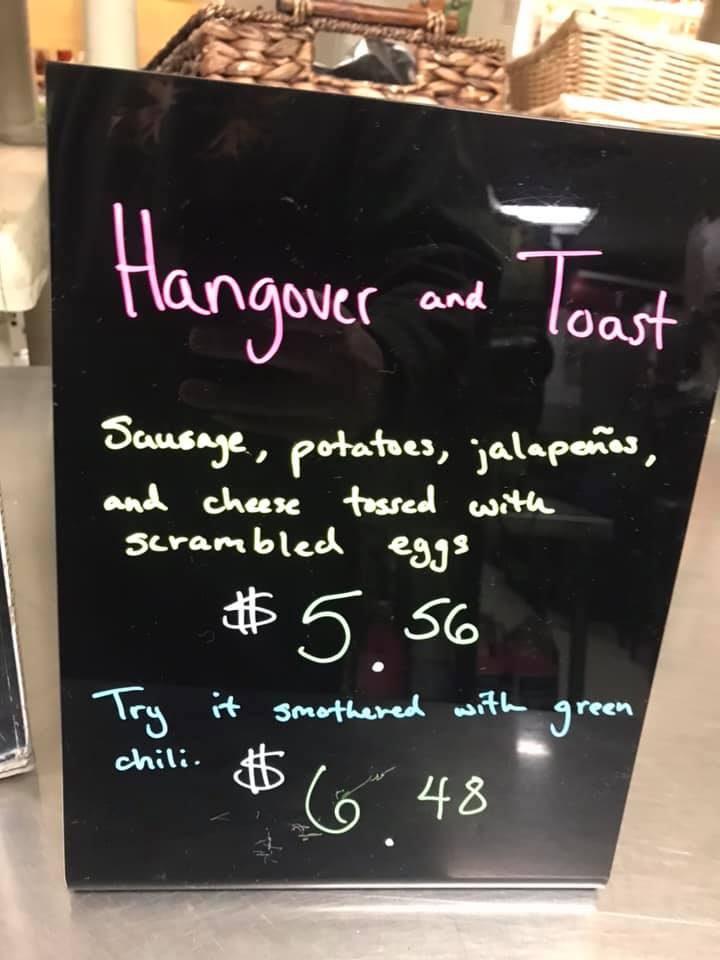 Hangover and Toast
Sausage, potatoes, jalapeños,
and cheese tossed with
scrambled eggs
$5.56
Try it smothered with green
chili. $6.48